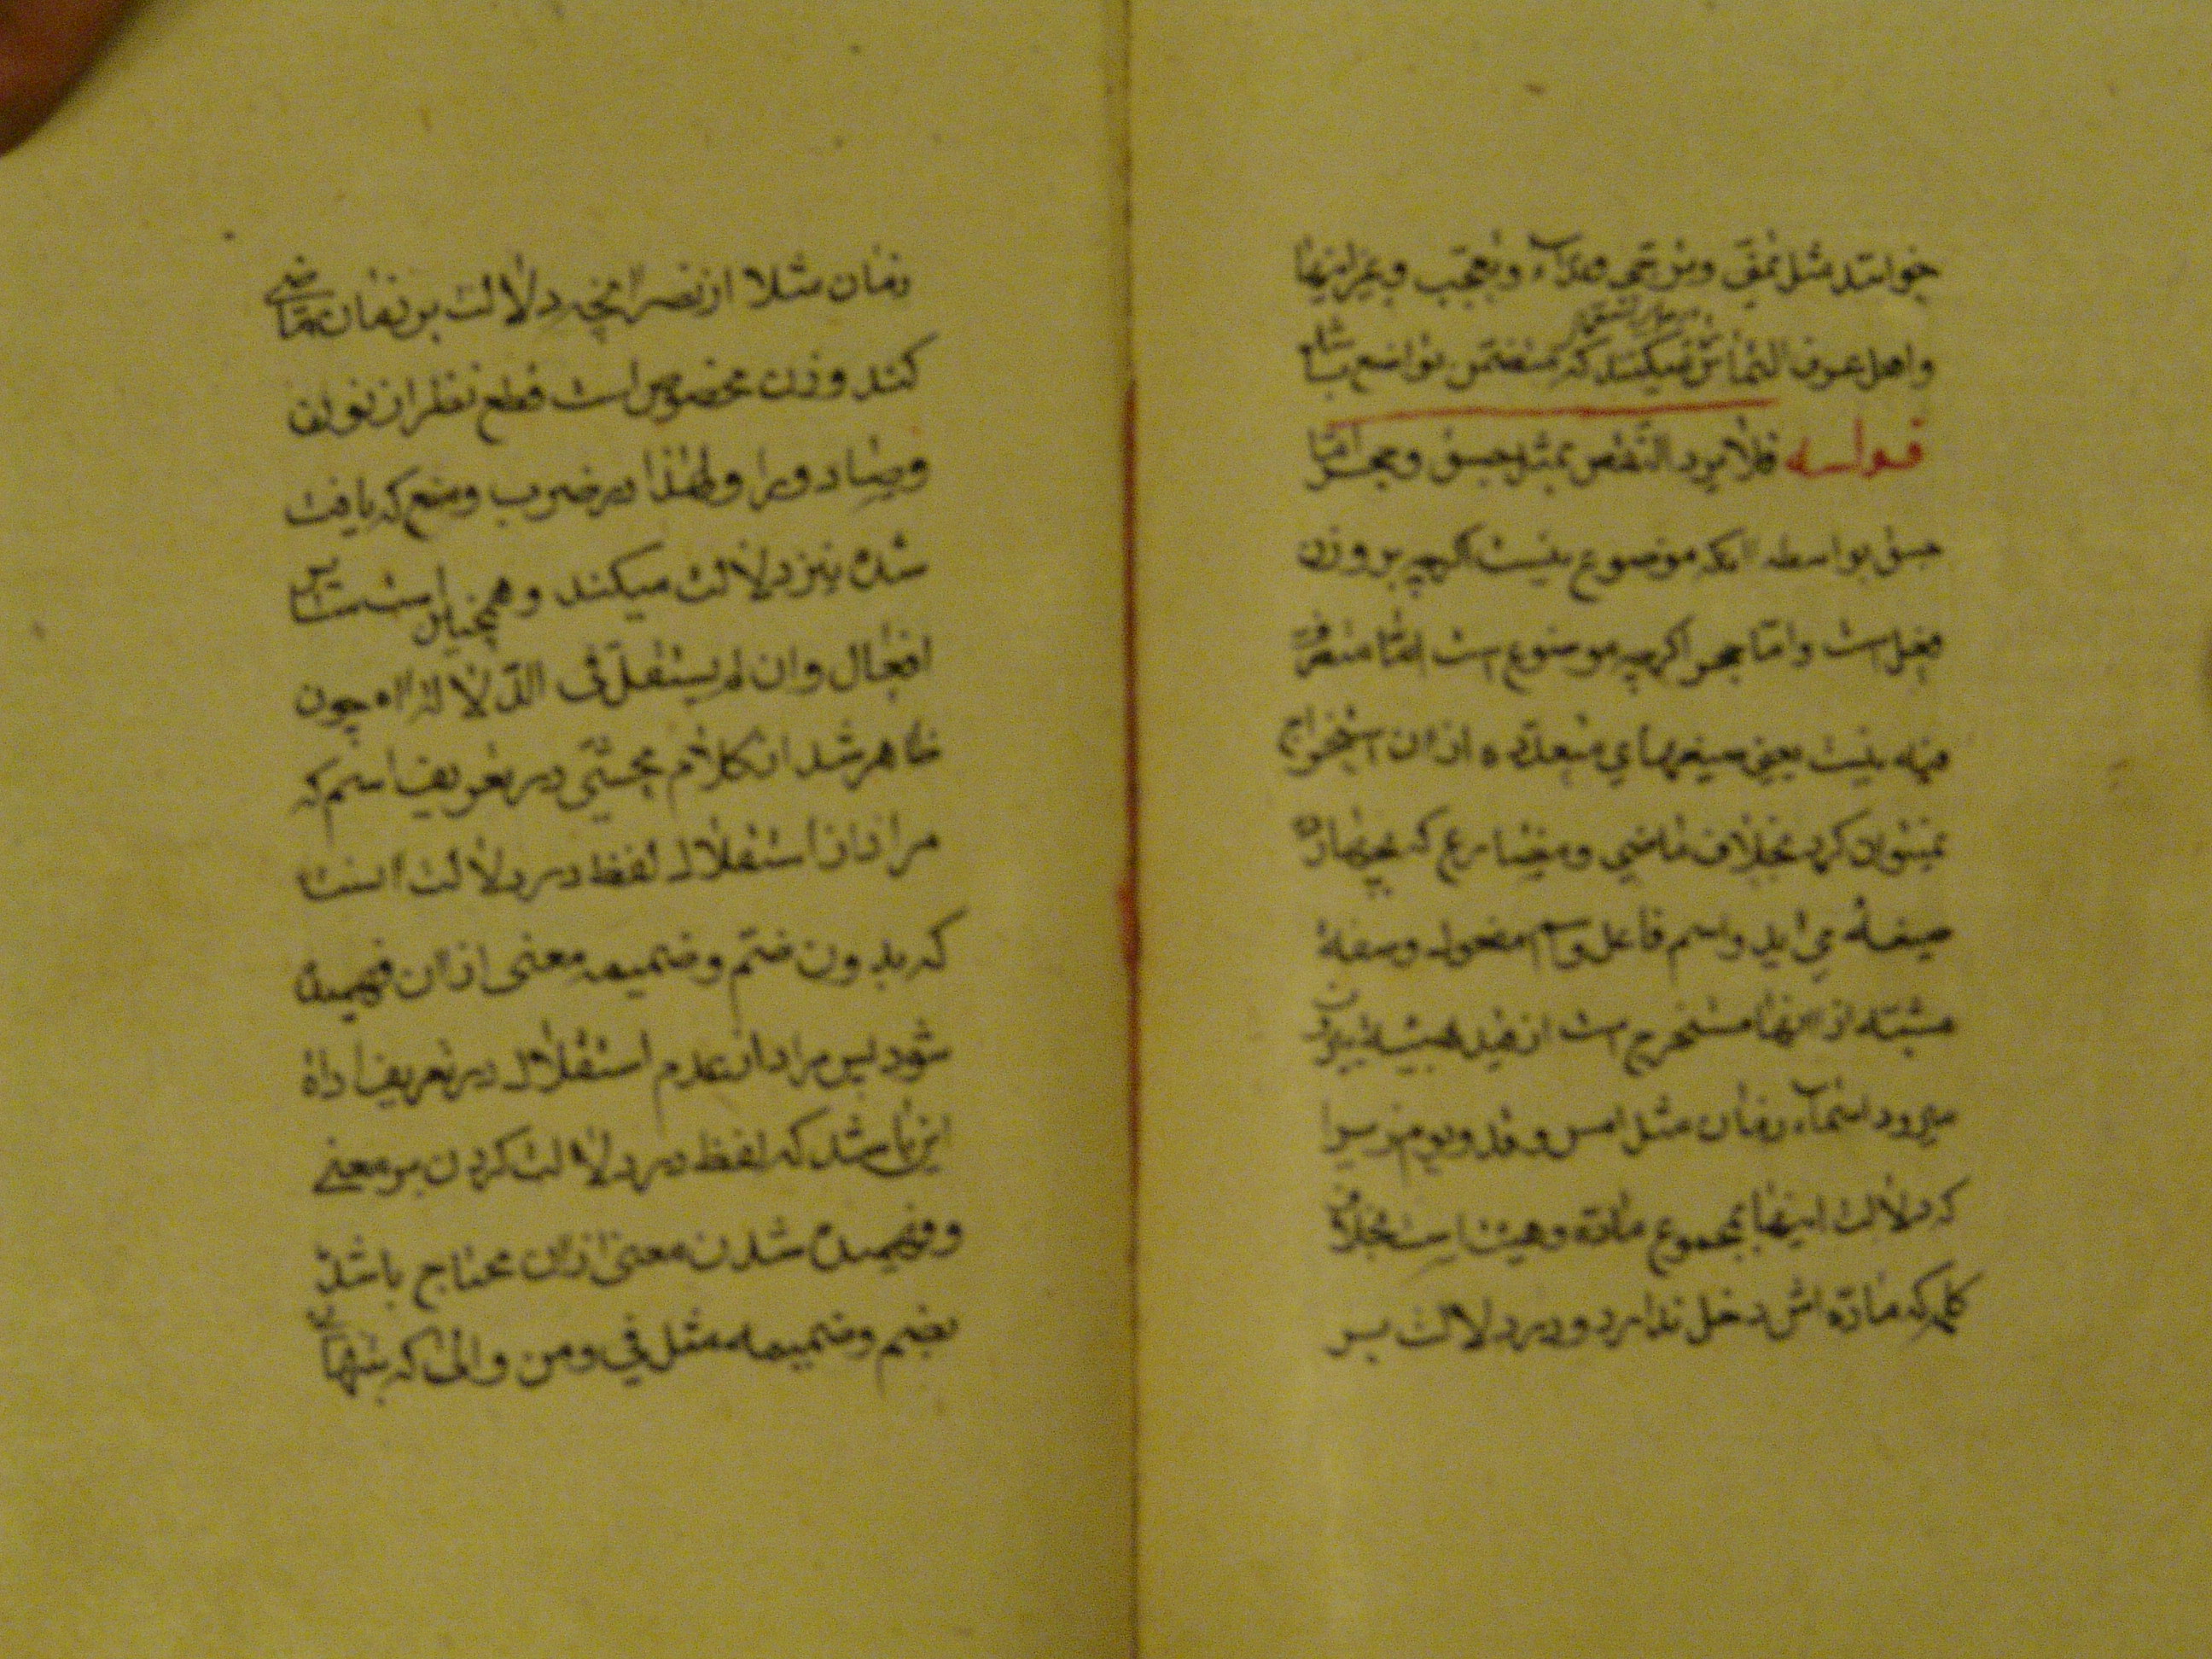 خوانند مثل تمنی و ترجی و نداء و تعجب و غیر اینها
و اهل عرف التماس میکنند که متضمن تواضع باشد
قوله فلا یرد النقض بمثل جسق و حجر اما
جسق بواسطه آنکه موضوع نیست اگرچه بر وزن
فعل است و اما حجر اگرچه موضوع است اما متصرف
فیه نیست یعنی صیغهای متعدده از ان استخراج
نمیتوان کرد بخلاف ماضی و مضارع که چهارده
صیغه می اید و اسم فاعل و اسم مفعول و صفة
مشبته از انها مستخرج است از قید هیئة بیرون
میرود اسماء زمان مثل امس و غد و یوم زیرا
که دلالت اینها بمجموع ماده و هیئت است بخلاف
کلمه که ماده اش دخل ندارد و در دلالت بر
زمان مثلا از نصر انچه دلالت بر زمان ماضی
کند وزن مخصوص است قطع نظر از نون
و صاد و را و لهذا در ضرب و منع که یافت
شده نیز دلالت میکند و همچنین است سایر
افعال و ان لم یستقل فی الدلالة اه چون
ظاهر شد از کلام محشی در تعریف اسم که
مراد از استقلال لفظ در دلالت انست
که بدون ضم و ضمیمه معنی از ان فهمیده
شود پس مراد از عدم استقلال در تعریف اداة
این باشد که لفظ در دلالت کردن بر معنی
و فهمیده شدن معنی از ان محتاج باشد
بضم و ضمیمه مثل فی و من و الی که بتنهائی